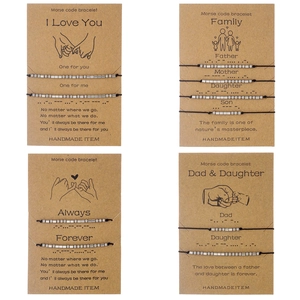 Morse code bracelet
I Love You
One for you
One for me
No matter where we go.
No matter what we do.
You'll always be there for me
and I'll always be there for you.
HANDMADE ITEM
Morse code bracelet
Family
Father
Mother
Daughter
Son
The family is one of
nature's masterpiece.
HANDMADE ITEM
Morse code bracelet
Always
Forever
No matter where we go.
No matter what we do.
You'll always be there for me
and I'll always be there for you.
HANDMADE ITEM
Morse code bracelet
Dad & Daughter
Dad
Daughter
The love between a father
and daughter is forever.
HANDMADE ITEM